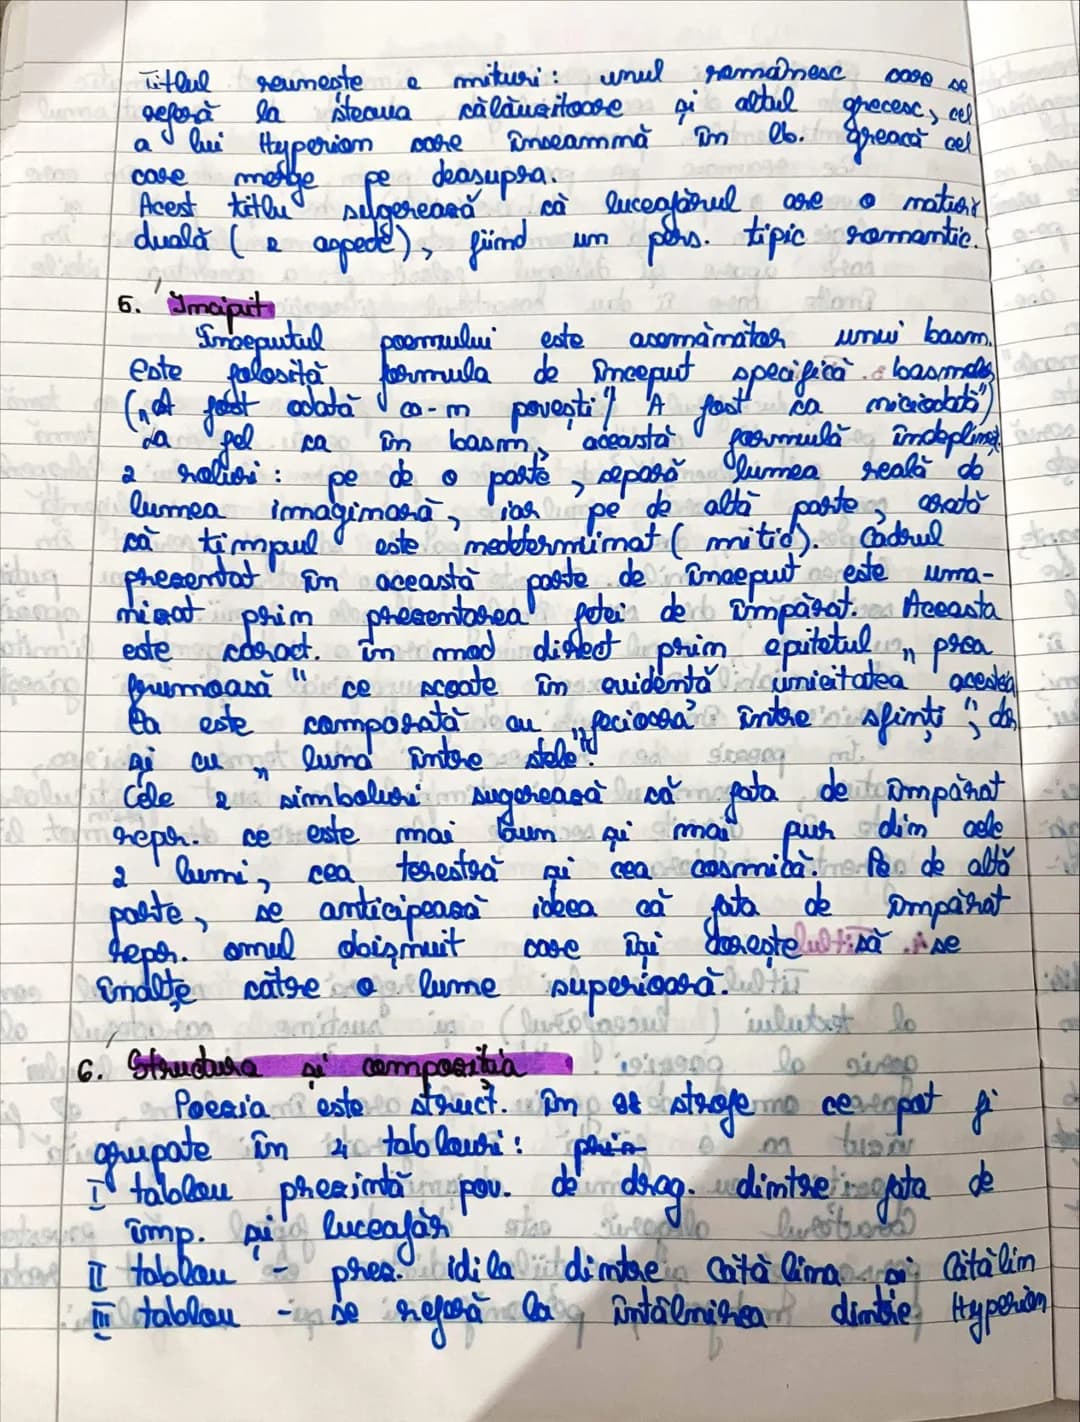 Titlul reunește 2 mituri: unul românesc care se
referă la steaua călăuzitoare și altul grecesc, cel
a lui Hyperion care înseamnă în lb. greacă cel
care merge pe deasupra.
Acest titlu sugerează că luceafărul are o natură
duală (2 aspecte), fiind un pers. tipic romantic.
5. Început
Începutul poemului este asemănător unui basm.
Este folosită formula de început specifică basmelor
("A fost odată ca-n povești / A fost ca niciodată")
La fel ca în basm, această formulă îndeplinește
2 roluri: pe de o parte, separă lumea reală de
lumea imaginară, iar pe de altă parte, arată
că timpul este nedeterminat (mitic). Cadrul
prezentat în această parte de început este uma-
nizat prin prezentarea fetei de împărat. Aceasta
este caract. în mod direct prin epitetul "prea
frumoasă" ce scoate în evidență unicitatea acesteia
Ea este comparată cu "fecioara între sfinți", dar
și cu "luna între stele".
Cele 2 simboluri sugerează că fata de împărat
repr. ce este mai bun și mai pur din cele
2 lumi, cea terestră și cea cosmică. Pe de altă
parte, se anticipează ideea că fata de împărat
repr. omul obișnuit care își dorește să se
înalțe către o lume superioară.
6. Structura și compoziția
Poezia este struct. în 98 strofe ce pot fi
grupate în 4 tablouri:
I tablou prezintă pov. de drag. dintre fata de
împ. și luceafăr
II tablou - prez. idila dintre Cătălina și Cătălin
III tablou - se referă la întâlnirea dintre Hyperion